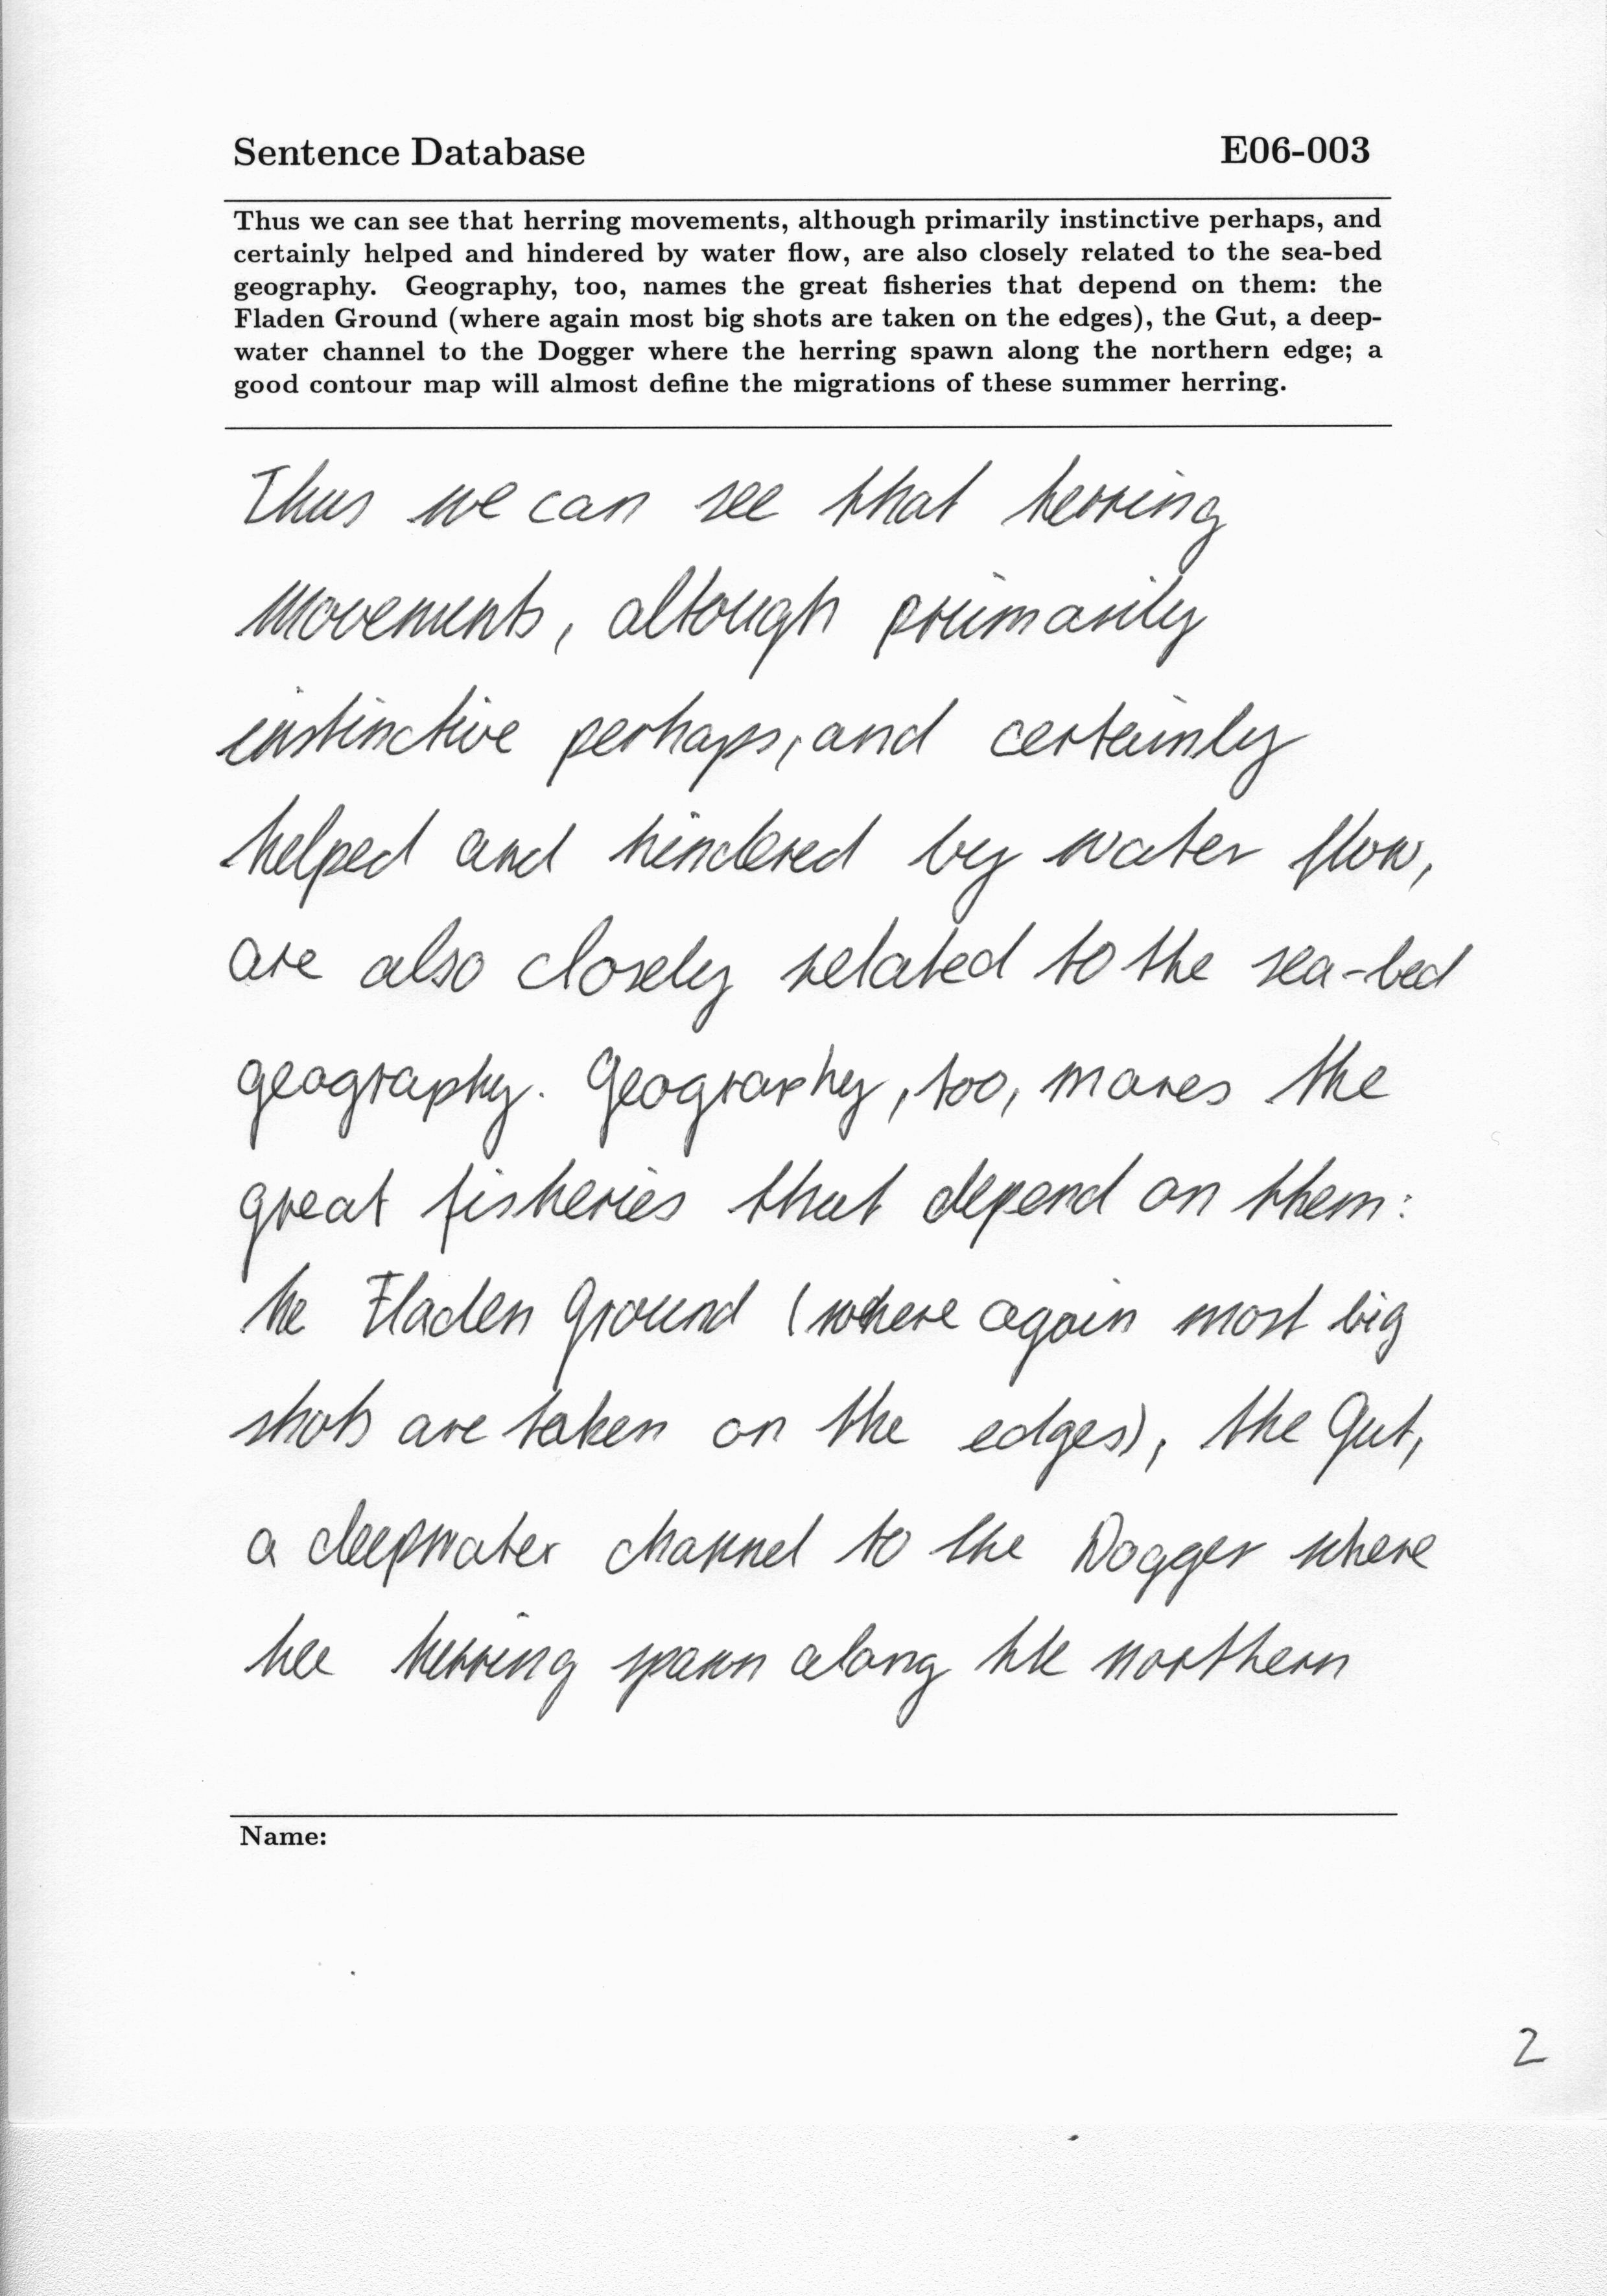 Sentence Database E06-003
Thus we can see that herring movements, although primarily instinctive perhaps, and
certainly helped and hindered by water flow, are also closely related to the sea-bed
geography. Geography, too, names the great fisheries that depend on them: the
Fladen Ground (where again most big shots are taken on the edges), the Gut, a deep-
water channel to the Dogger where the herring spawn along the northern edge; a
good contour map will almost define the migrations of these summer herring.
Thus we can see that herring
movements, altough primarily
instinctive perhaps, and certainly
helped and hindered by water flow,
are also closely related to the sea-bed
geography. Geography, too, mares the
great fisheries that depend on them:
he Fladen Ground (where again most big
shots are taken on the edges), the Gut,
a deepwater channel to the Dogger where
hee herring spawn along the northern
Name:
2